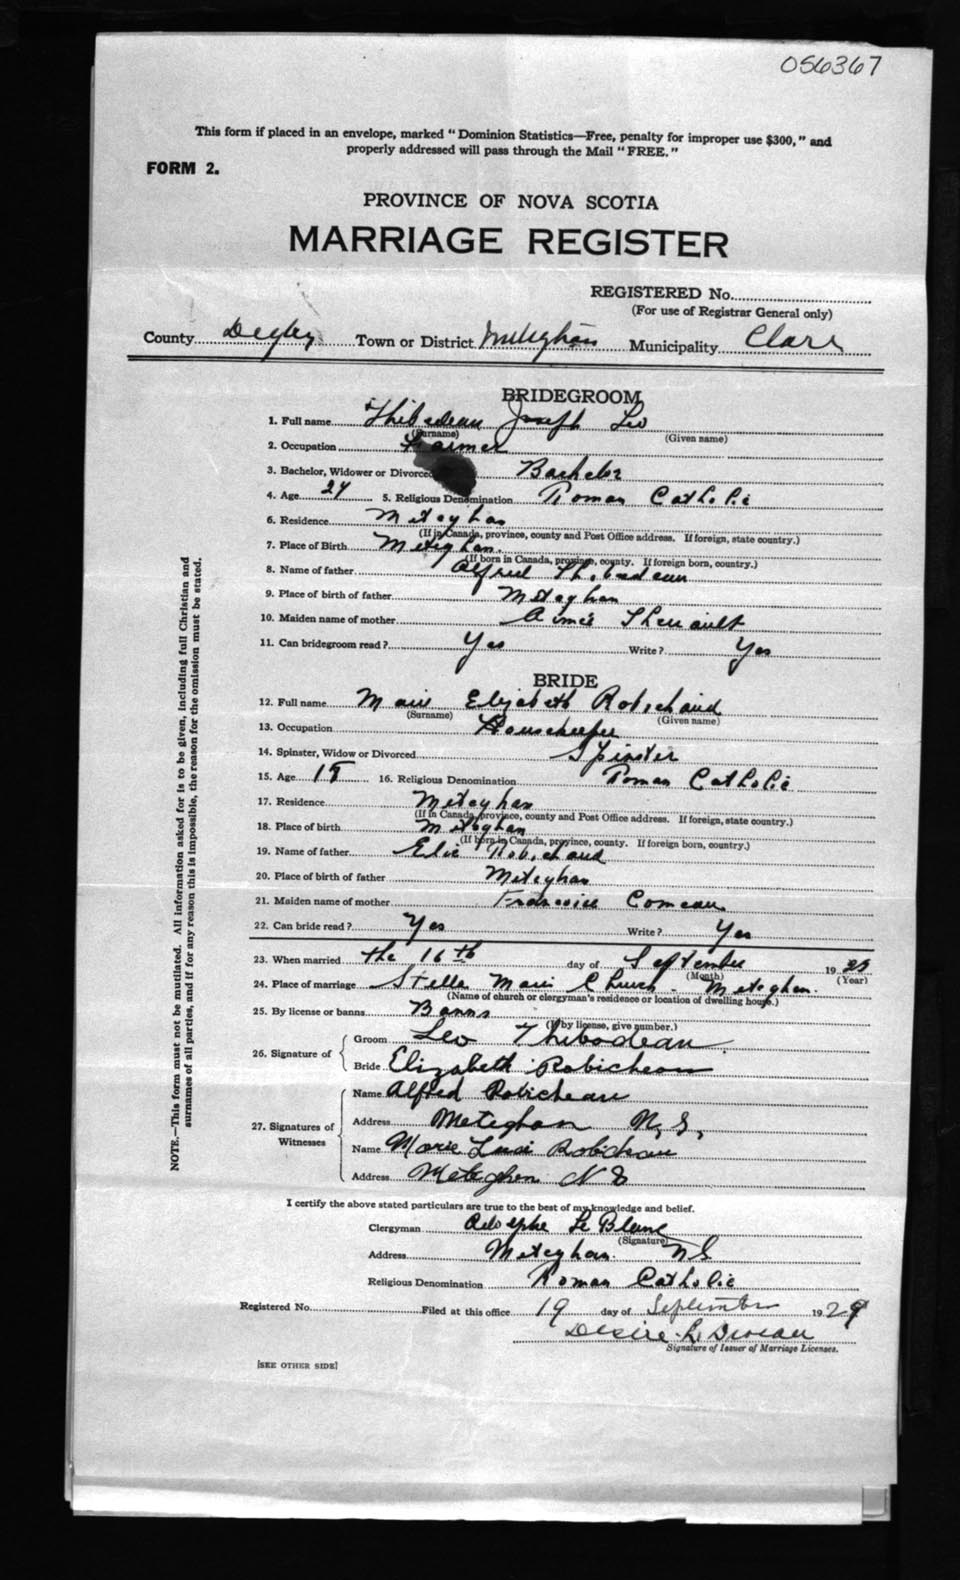 056367
This form if placed in an envelope, marked "Dominion Statistics—Free, penalty for improper use $300," and
properly addressed will pass through the Mail "FREE."
FORM 2.
PROVINCE OF NOVA SCOTIA
MARRIAGE REGISTER
REGISTERED No.
(For use of Registrar General only)
County Digby Town or District Meteghan Municipality Clare
BRIDEGROOM
1. Full name Thibedeau Joseph Leo
(Surname) (Given name)
2. Occupation Farmer
3. Bachelor, Widower or Divorced Bachelor
4. Age 24 5. Religious Denomination Roman Catholic
6. Residence Meteghan
(If in Canada, province, county and Post Office address. If foreign, state country.)
7. Place of Birth Meteghan.
(If born in Canada, province, county. If foreign born, country.)
8. Name of father Alfred Thibedeau
9. Place of birth of father Meteghan
10. Maiden name of mother Aimée Theriault
11. Can bridegroom read? Yes Write? Yes
BRIDE
12. Full name Marie Elizabeth Robichaud
(Surname) (Given name)
13. Occupation Housekeeper
14. Spinster, Widow or Divorced Spinster
15. Age 16. Religious Denomination Roman Catholic
17. Residence Meteghan
(If in Canada, province, county and Post Office address. If foreign, state country.)
18. Place of birth Meteghan
(If born in Canada, province, county. If foreign born, country.)
19. Name of father Elie Robichaud
20. Place of birth of father Meteghan
21. Maiden name of mother Francoise Comeau
22. Can bride read? Yes Write? Yes
23. When married the 16th day of September 1929
(Month) (Year)
24. Place of marriage Stella Maris Church - Meteghan.
(Name of church or clergyman's residence or location of dwelling house.)
25. By license or banns Banns
(If by license, give number.)
26. Signature of
Groom Leo Thibodeau.
Bride Elizabeth Robicheau
27. Signatures of Witnesses
Name Alfred Robicheau
Address Meteghan N.S.
Name Marie Robicheau
Address Meteghan N S
I certify the above stated particulars are true to the best of my knowledge and belief.
Clergyman Adolphe Le Blanc
(Signature)
Address Meteghan. N S
Religious Denomination Roman Catholic
Registered No. Filed at this office 19 day of September 1929
Desire L Deveau
Signature of Issuer of Marriage Licenses.
[SEE OTHER SIDE]
NOTE.—This form must not be mutilated. All information asked for is to be given, including full Christian and
surnames of all parties, and if for any reason this is impossible, the reason for the omission must be stated.